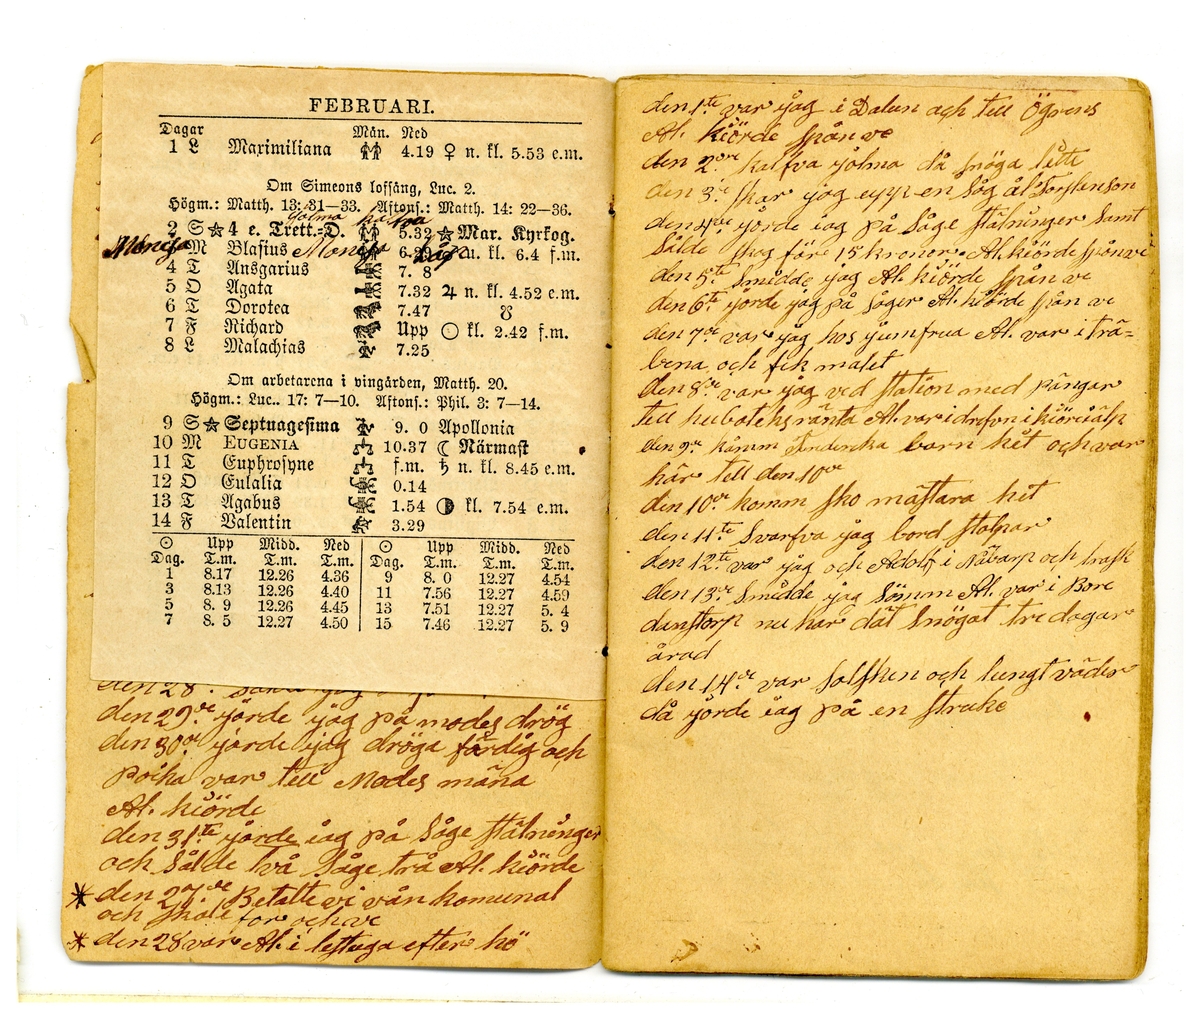 FEBRUARI.
Dagar Mån. Ned
1 L Maximiliana 4.19 ♀ n. kl. 5.53 e.m.
Om Simeons lofsång, Luc. 2.
Högm.: Matth. 13: 31—33. Aftons.: Matth. 14: 22—36.
2 S ☆ 4 e. Trett.=D. 5.32 ☆ Mar. Kyrkog.
M Blasius 6.2 n. kl. 6.4 f.m.
4 T Ansgarius 7. 8
5 O Agata 7.32 ♃ n. kl. 4.52 e.m.
6 T Dorotea 7.47 ☋
7 F Richard Upp ☉ kl. 2.42 f.m.
8 L Malachias 7.25
Om arbetarena i vingården, Matth. 20.
Högm.: Luc.. 17: 7—10. Aftons.: Phil. 3: 7—14.
9 S ☆ Septuagesima 9. 0 Apollonia
10 M EUGENIA 10.37 ☾ Närmast
11 T Euphrosyne f.m. ♄ n. kl. 8.45 e.m.
12 O Eulalia 0.14
13 T Agabus 1.54 ◑ kl. 7.54 e.m.
14 F Valentin 3.29
☉ Upp Midd. Ned ☉ Upp Midd. Ned
Dag. T.m. T.m. T.m. Dag. T.m. T.m. T.m.
1 8.17 12.26 4.36 9 8. 0 12.27 4.54
3 8.13 12.26 4.40 11 7.56 12.27 4.59
5 8. 9 12.26 4.45 13 7.51 12.27 5. 4
7 8. 5 12.27 4.50 15 7.46 12.27 5. 9
den 28.
den 29.de yörde yåg på modes drög
den 30de yörde yåg dröga färdig och
poika var till Modes måna
Al. kiörde
den 31.te yörde iag på Såge stälninger
och Sålde två Såge trå Al. kiörde
* den 27.de Betalte vi vån komunal
och skole for och ve
* den 28 var Al. i lestuga efter hö
den 1.te var yåg i Dalen och till Ögrens
Al. kiörde spån ve
den 2.dre kalfva yolma då snöga lätte
den 3.je skar yag upp en Såg ål Torstenson
den 4.de yörde iag på Såge stälninger Samt
Sålde skog för 15 kronor. Al. kiörde spånve
den 5.te Smidde yag Al. kiörde spån ve
den 6.te yörde yåg på såger Al. kiörde spån ve
den 7.de var yåg hos yumfrua Al. var i trä-
bena och fik malet
den 8.de var yåg ved station med pängar
till huboteksränta Al. var i
den 9.de kåmm barn hit och var
här till den 10de
den 10.de komm sko mästara hit
den 11.te Svarfva yåg bord stolpar
den 12.te var yåg och Adolf i Nåbarp och trask
den 13.de Smidde yåg Sömm Al. var i Bore
danstorp nu har dät Snögat tre dagar
årad
den 14.de var Solsken och lungt väder
då yörde iag på en strake